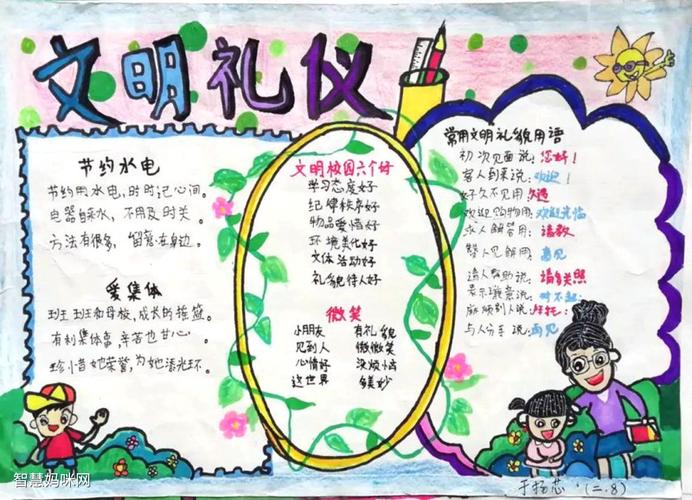 文明礼仪
节约水电
节约用水电,时时记心间。
电器自来水,不用及时关。
方法有很多,留意在身边。
爱集体
班班班和母校,成长的摇篮。
有利集体富,辛苦也甘心。
珍惜她荣誉,为她添光环。
文明校园六个好
学习态度好
纪律秩序好
物品爱惜好
环境美化好
文体活动好
礼貌待人好
微笑
小朋友 有礼貌
见到人 微微笑
心情好 没烦恼
这世界 多美妙
常用文明礼貌用语
初次见面说:您好!
客人到来说:欢迎!
好久不见用:久违
欢迎购物用:欢迎光临
求人解答用:请教
请人帮助说:请多关照
表示歉意说:对不起
麻烦别人说:拜托
与人分手说:再见
于扬芯·(二.8)
智慧妈咪网